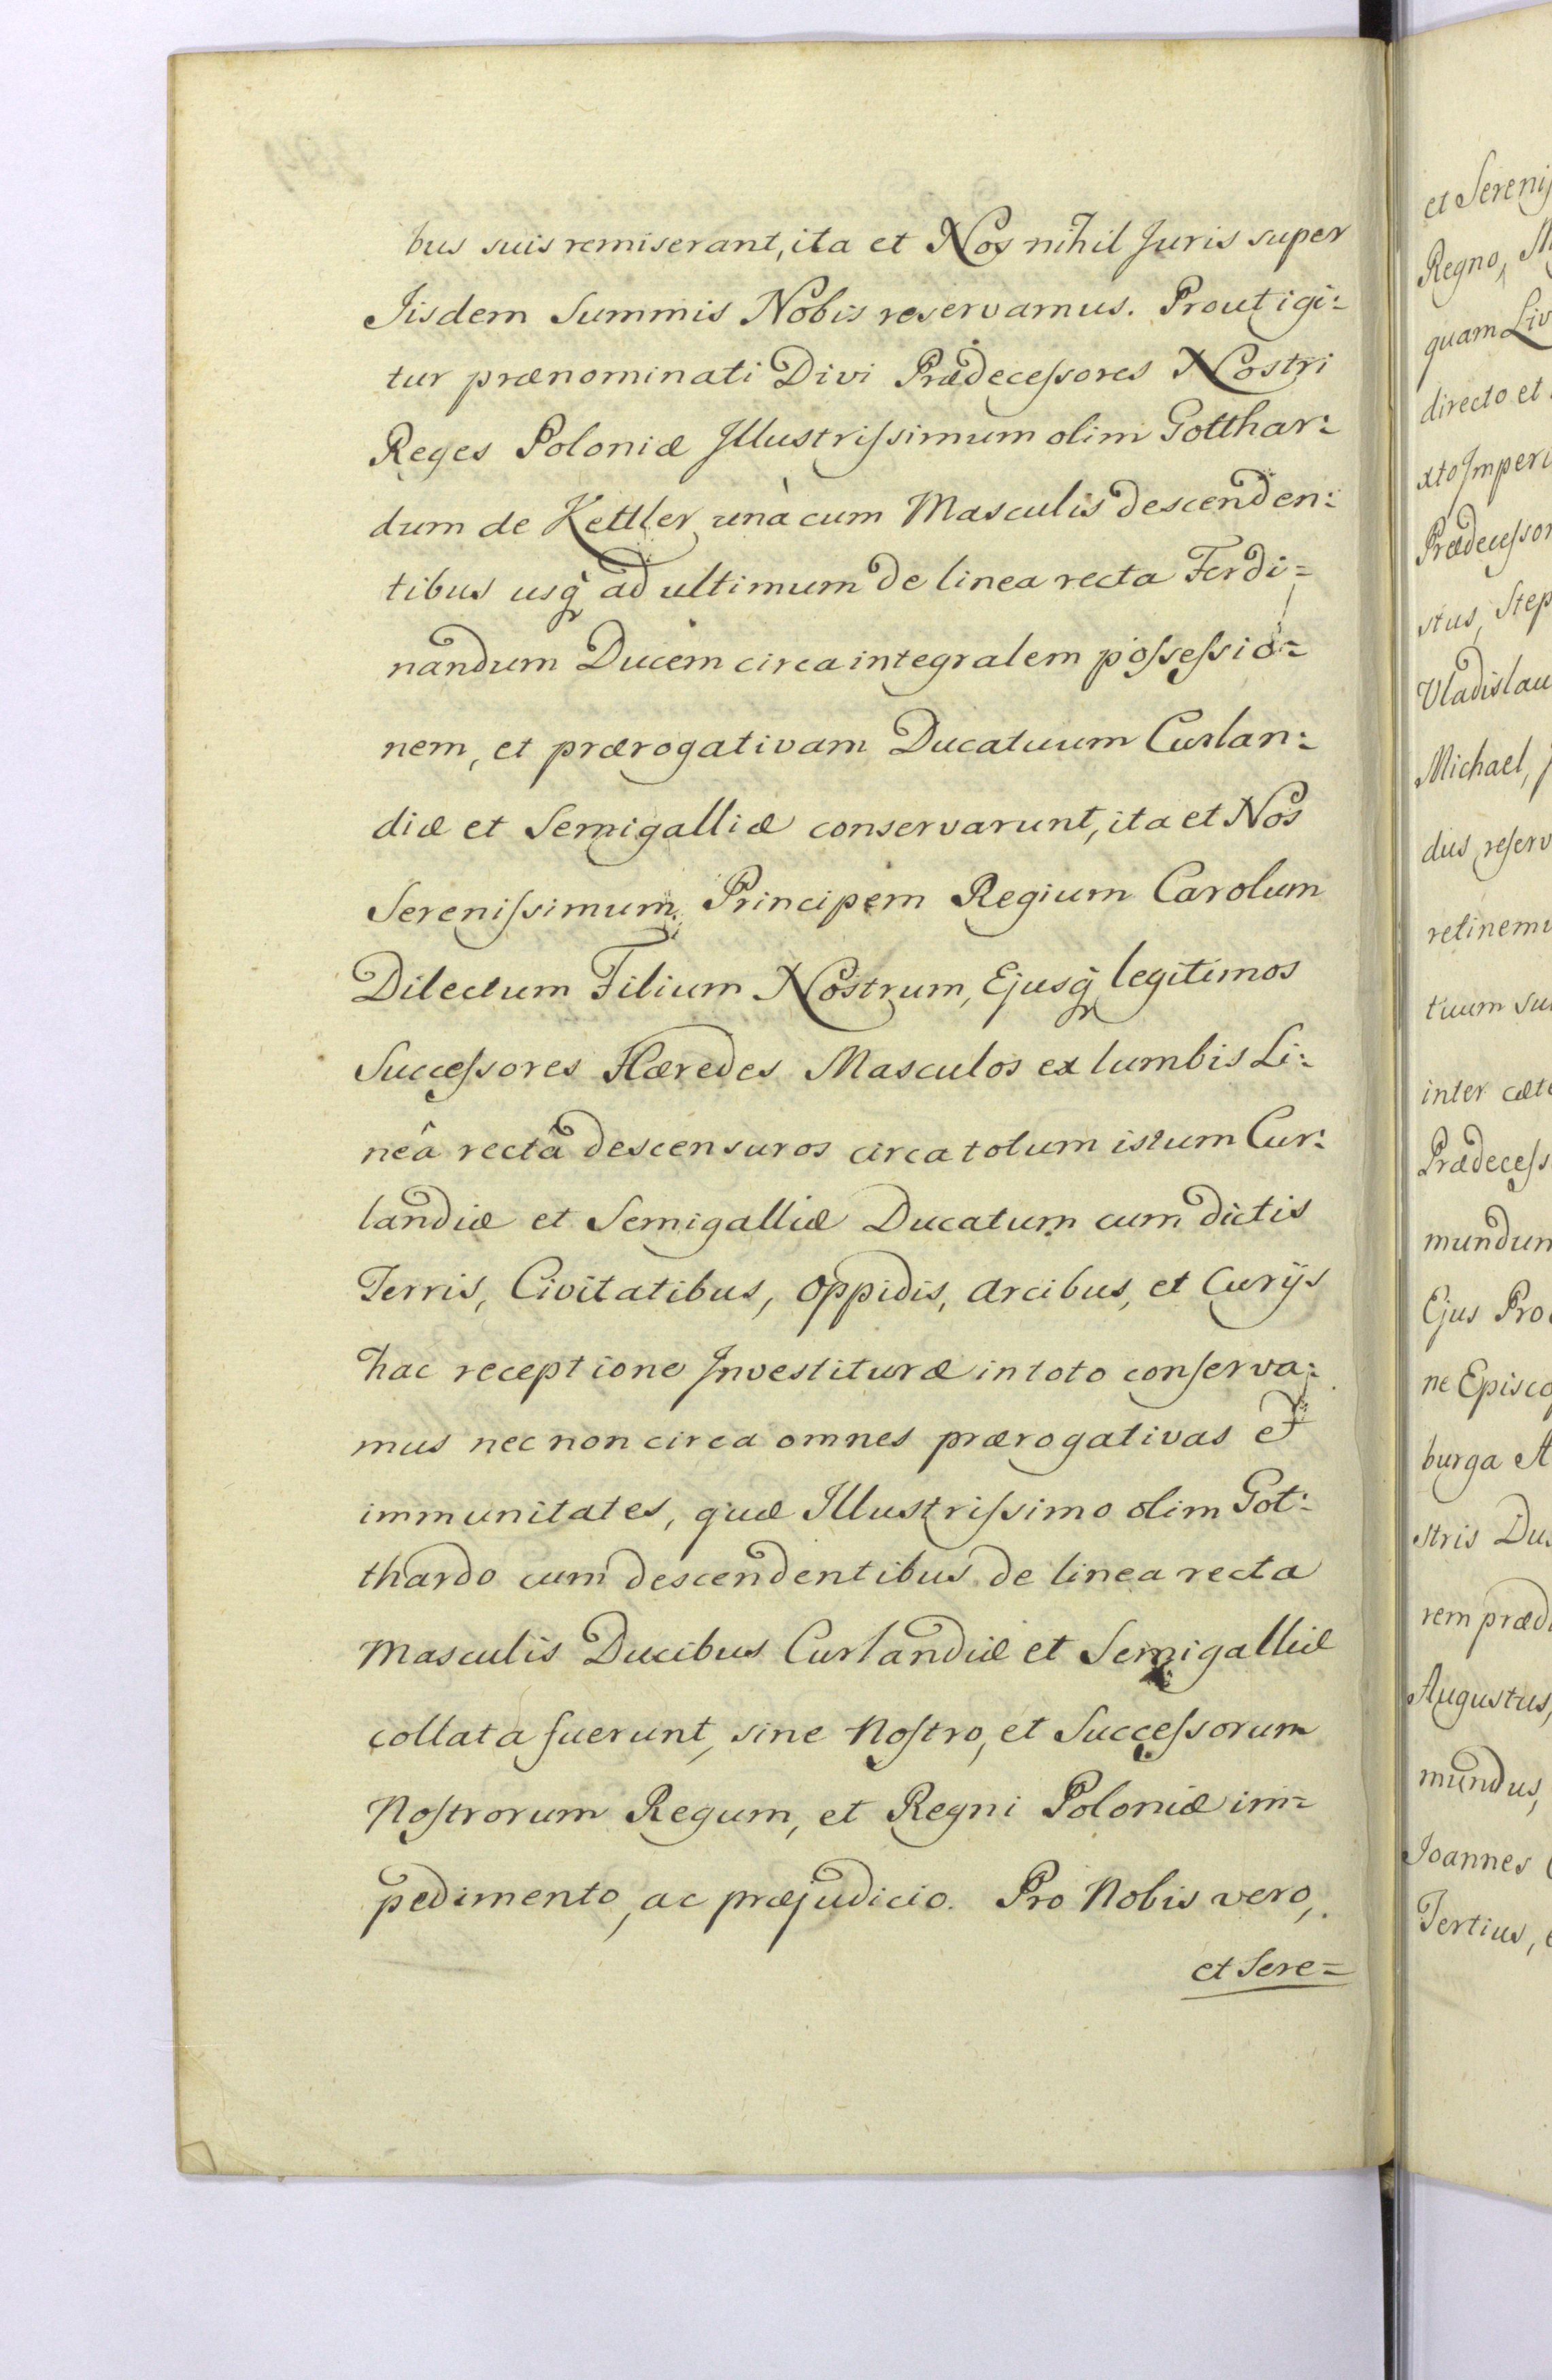 bus suis remiserant, ita et Nos nihil Juris super
Jisdem Summis Nobis reservamus. Prout igi:
tur prænominati Divi Prædeceſsores Nostri
Reges Poloniæ Jllustriſsimum olim Gotthar:
dum de Kettler unà cum Masculis descenden:
tibus usq̃ ad ultimum de linea recta Ferdi=
nandum Ducem circa integralem poſseſsio=
nem, et prærogativam Ducatuum Curlan:
diæ et Semigalliæ conservarunt, ita et Nos
Sereniſsimum Principem Regium Carolum
Dilectum Filium Nostrum, Ejusq̃ legitimos
Succeſsores Hæredes Masculos ex lumbis Li:
neâ rectâ descensuros circa totum istum Cur:
landiæ et Semigalliæ Ducatum cum dictis
Terris, Civitatibus, Oppidis, Arcibus, et Curijs
hac receptione Jnvestituræ in toto conſerva:
mus nec non circa omnes prærogativas et
immunitates, quæ Jllustriſsimo olim Got:
thardo cum descendentibus de linea recta
Masculis Ducibus Curlandiæ et Semigalliæ
collata fuerunt, sine Noſtro, et Succeſsorum
Noſtrorum Regum, et Regni Poloniæ im=
pedimento, ac præjudicio. Pro Nobis vero,
et Sere=
et Sereniſ
Regno,
quam Liv
directo et
xto Jmperi
Prædeceſsor
stus, Step
Vladislau
Michael,
dus reſerv
retinemu
tuum su
inter cæte
Prædeceſs
mundum
Ejus Pro
ne Episco
burga A
stris Du
rem præd
Augustus,
mundus,
Joannes
Tertius,